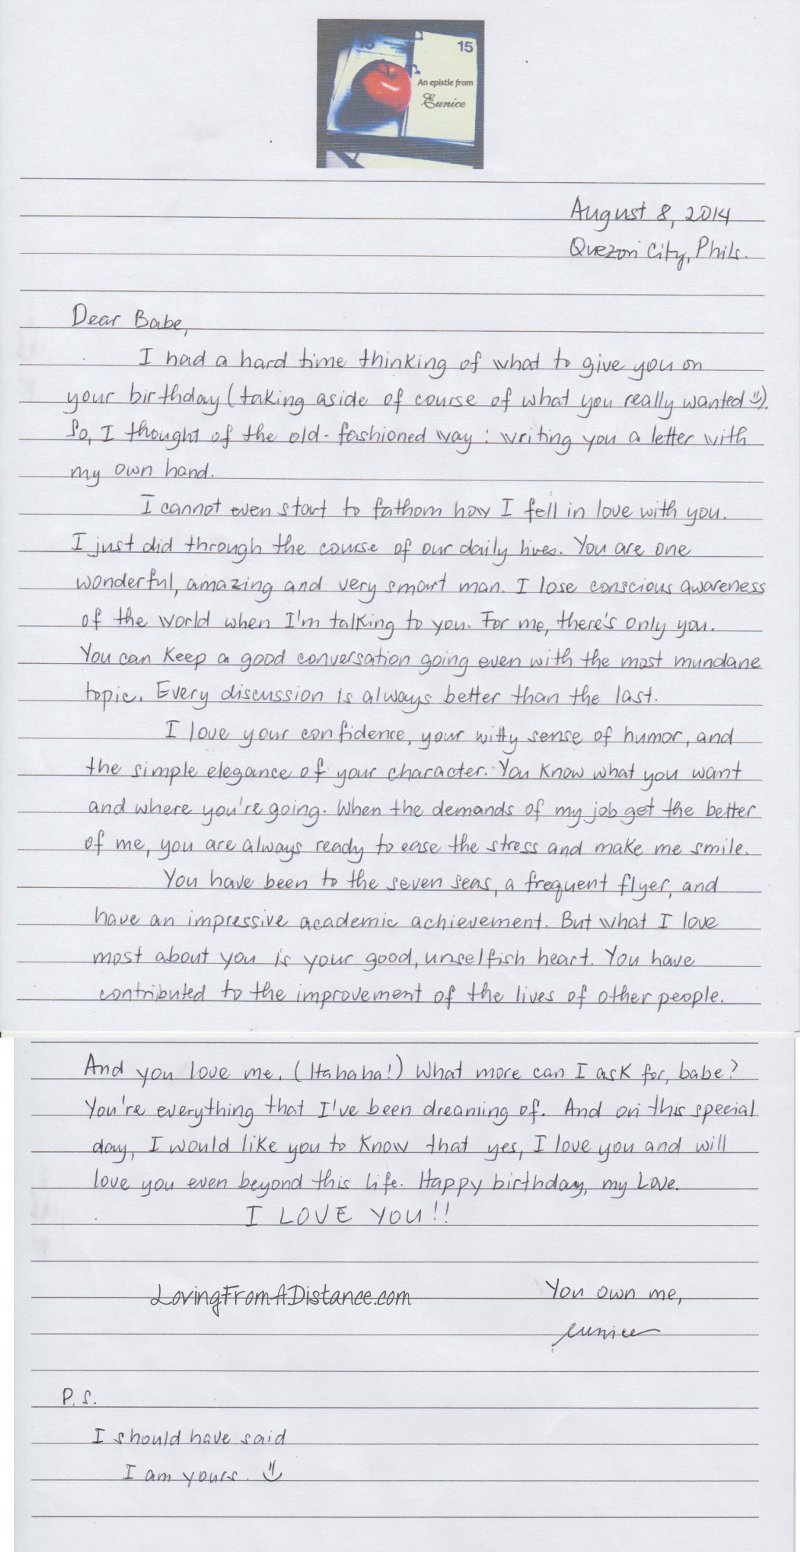 15
15
An epistle from
Eunice
August 8, 2014
Quezon City, Phils.
Dear Babe,
I had a hard time thinking of what to give you on
your birthday (taking aside of course of what you really wanted :)).
So, I thought of the old-fashioned way: writing you a letter with
my own hand.
I cannot even start to fathom how I fell in love with you.
I just did through the course of our daily lives. You are one
wonderful, amazing and very smart man. I lose conscious awareness
of the world when I'm talking to you. For me, there's only you.
You can keep a good conversation going even with the most mundane
topic. Every discussion is always better than the last.
I love your confidence, your witty sense of humor, and
the simple elegance of your character. You know what you want
and where you're going. When the demands of my job get the better
of me, you are always ready to ease the stress and make me smile.
You have been to the seven seas, a frequent flyer, and
have an impressive academic achievement. But what I love
most about you is your good, unselfish heart. You have
contributed to the improvement of the lives of other people.
And you love me. (Hahaha!) What more can I ask for, babe?
You're everything that I've been dreaming of. And on this special
day, I would like you to know that yes, I love you and will
love you even beyond this life. Happy birthday, my Love.
I LOVE YOU!!
LovingFromADistance.com
You own me,
eunice
P.S.
I should have said
I am yours. :)